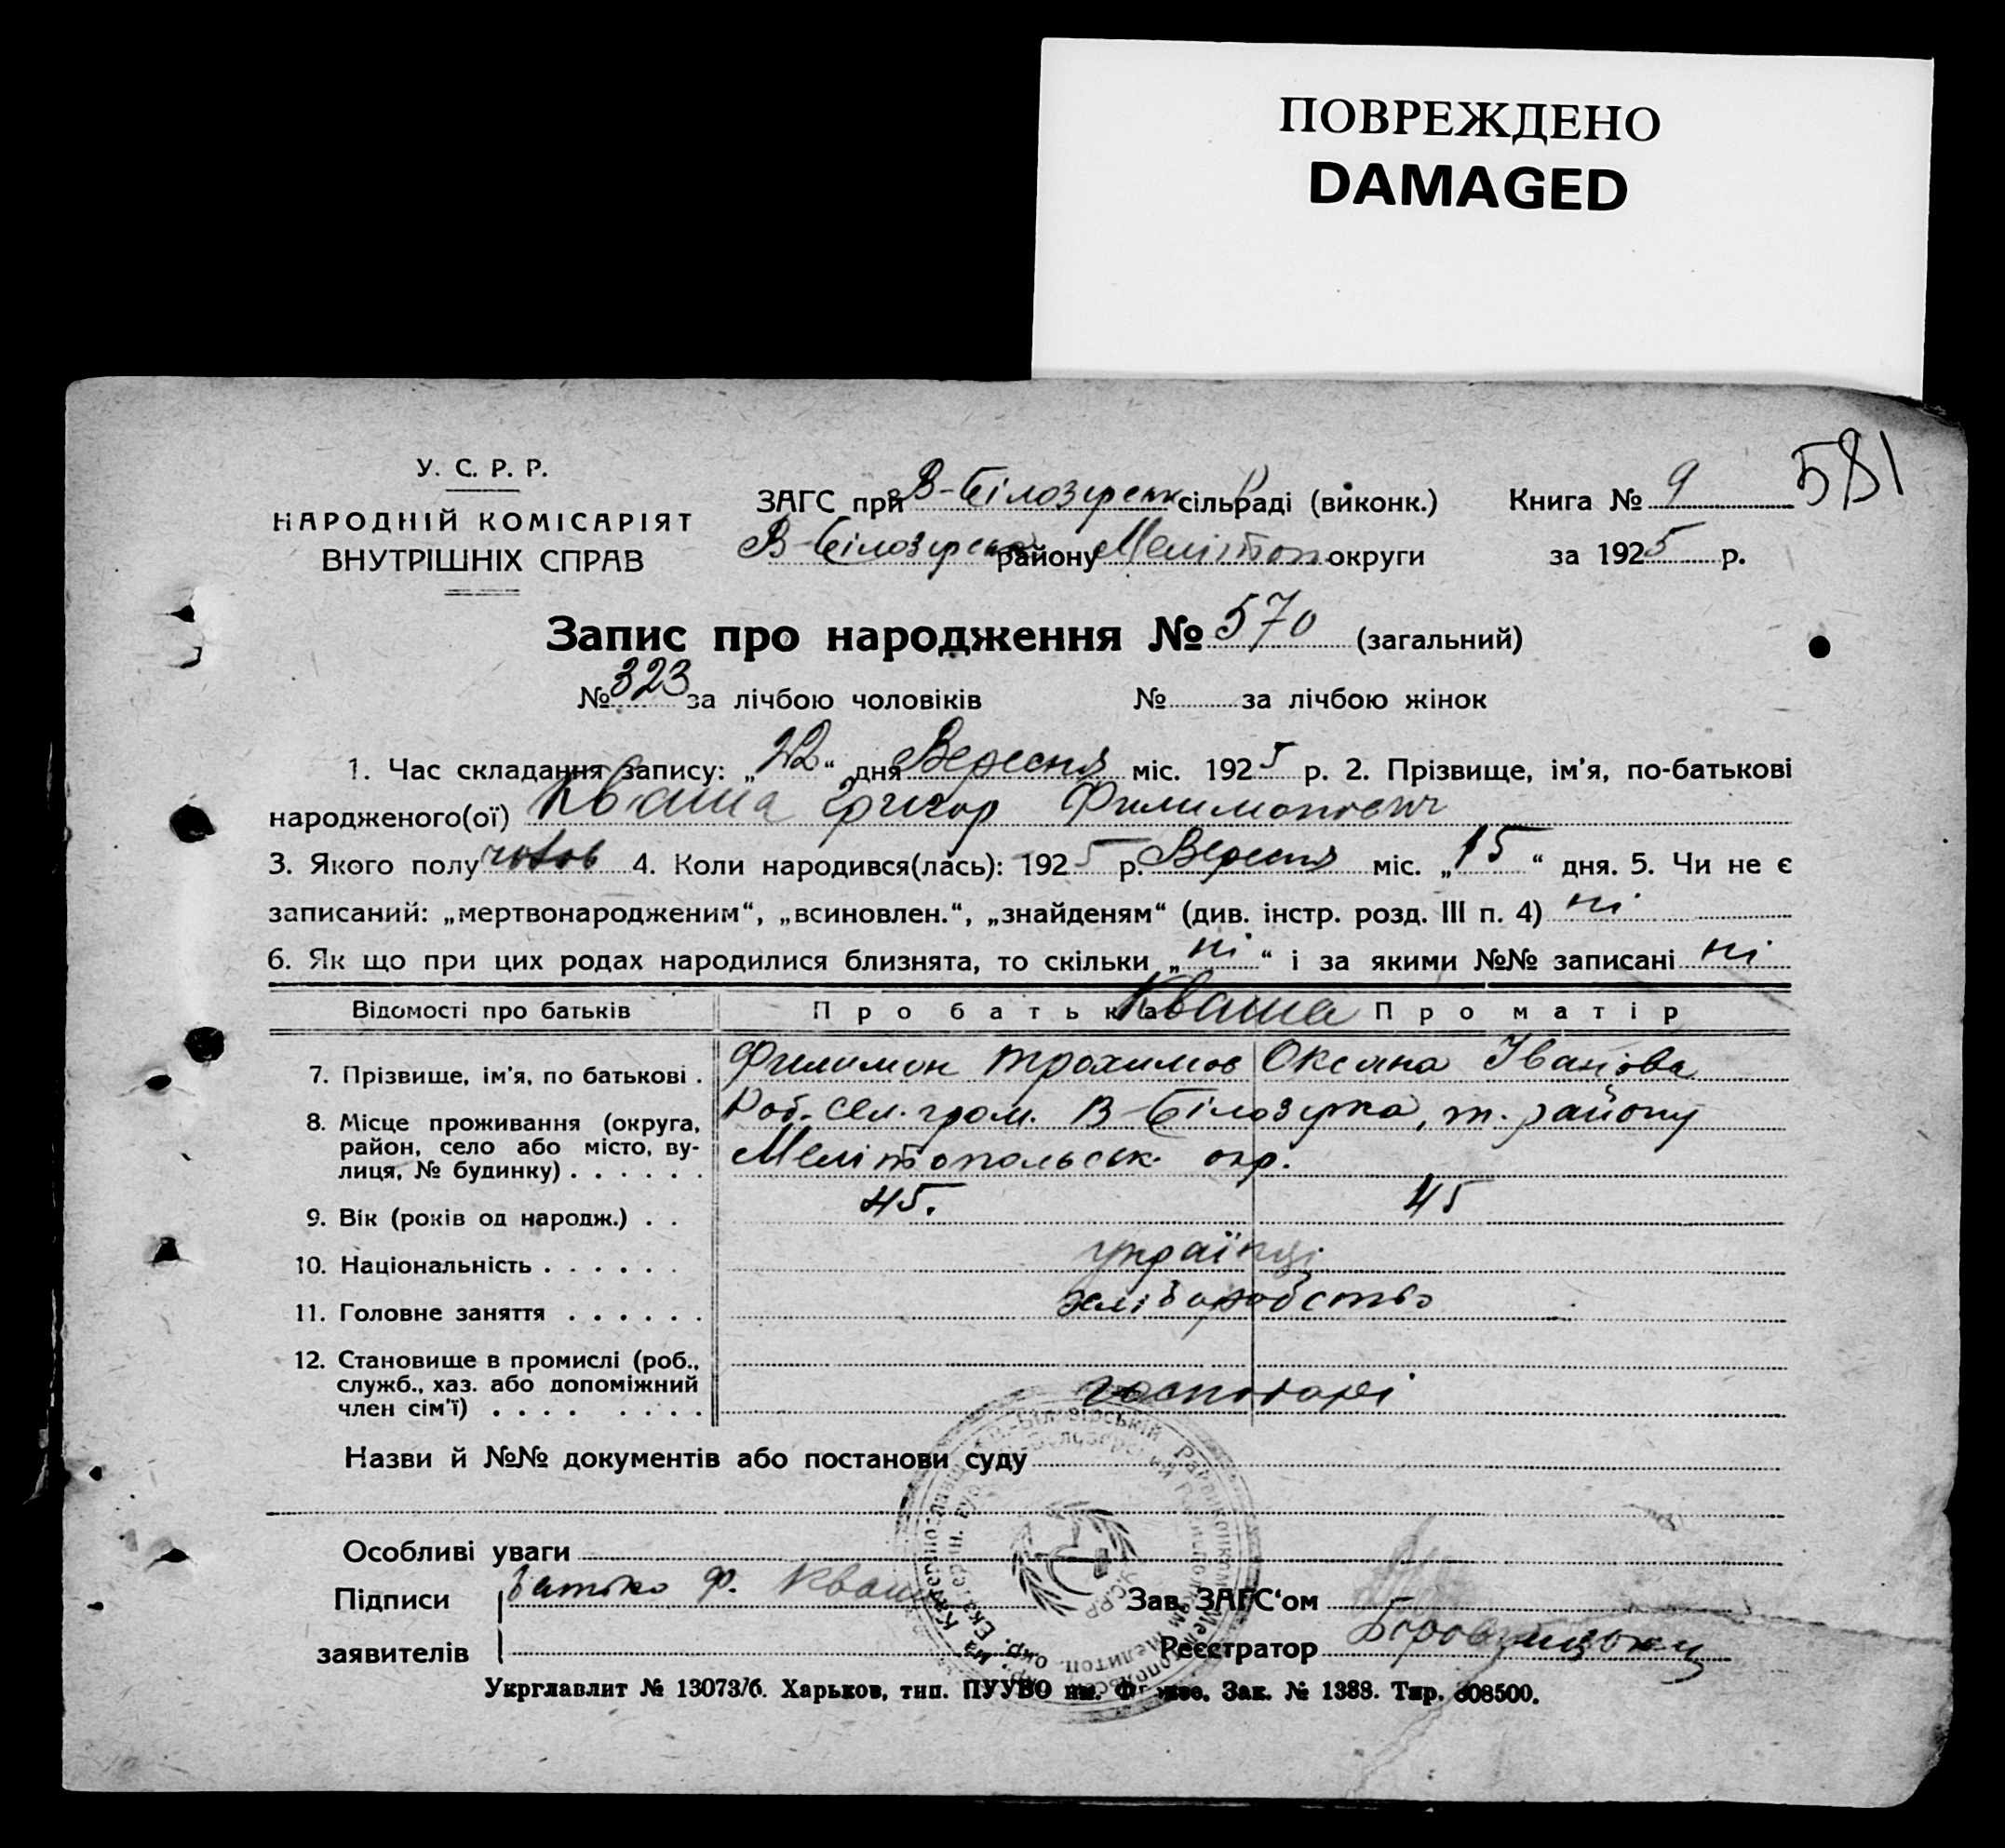 ПОВРЕЖДЕНО
DAMAGED
581
У. С. Р. Р.
НАРОДНІЙ КОМІСАРІЯТ
ВНУТРІШНІХ СПРАВ
ЗАГС при В-Білозерськ сільраді (виконк.) Книга № 9
В-Білозерськ району Мелітоп округи за 1925 р.
Запис про народження № 570 (загальний)
№ 323 за лічбою чоловіків № за лічбою жінок
1. Час складання запису: „22“ дня Вересня міс. 1925 р. 2. Прізвище, ім'я, по-батькові
народженого(ої) Кваша Григор Филимонович
3. Якого полу чолов 4. Коли народився(лась): 1925 р. Вересня міс. „15“ дня. 5. Чи не є
записаний: „мертвонародженим“, „всиновлен.“, „знайденям“ (див. інстр. розд. III п. 4) ні
6. Як що при цих родах народилися близнята, то скільки „ні“ і за якими №№ записані ні
Відомості про батьків Про батька Кваша Про матір
7. Прізвище, ім'я, по батькові . Филимон Трохимов Оксана Іванова
8. Місце проживання (округа, район, село або місто, вулиця, № будинку) . . . . . . сел. гром. В-Білозерка, т. району
Мелітопольськ. окр.
9. Вік (років од народж.) . . 45. 45
10. Національність . . . . . . українці
11. Головне заняття . . . . . . хліборобство
12. Становище в промислі (роб., служб., хаз. або допоміжний член сім'ї) . . . . . . . . господарі
Назви й №№ документів або постанови суду
Особливі уваги
Підписи Батько Ф. Кваша Зав. ЗАГС'ом
заявителів Реєстратор
Укрглавлит № 13073/б. Харьков, тип. ПУУВО им. Зак. № 1388. Тир. 808500.